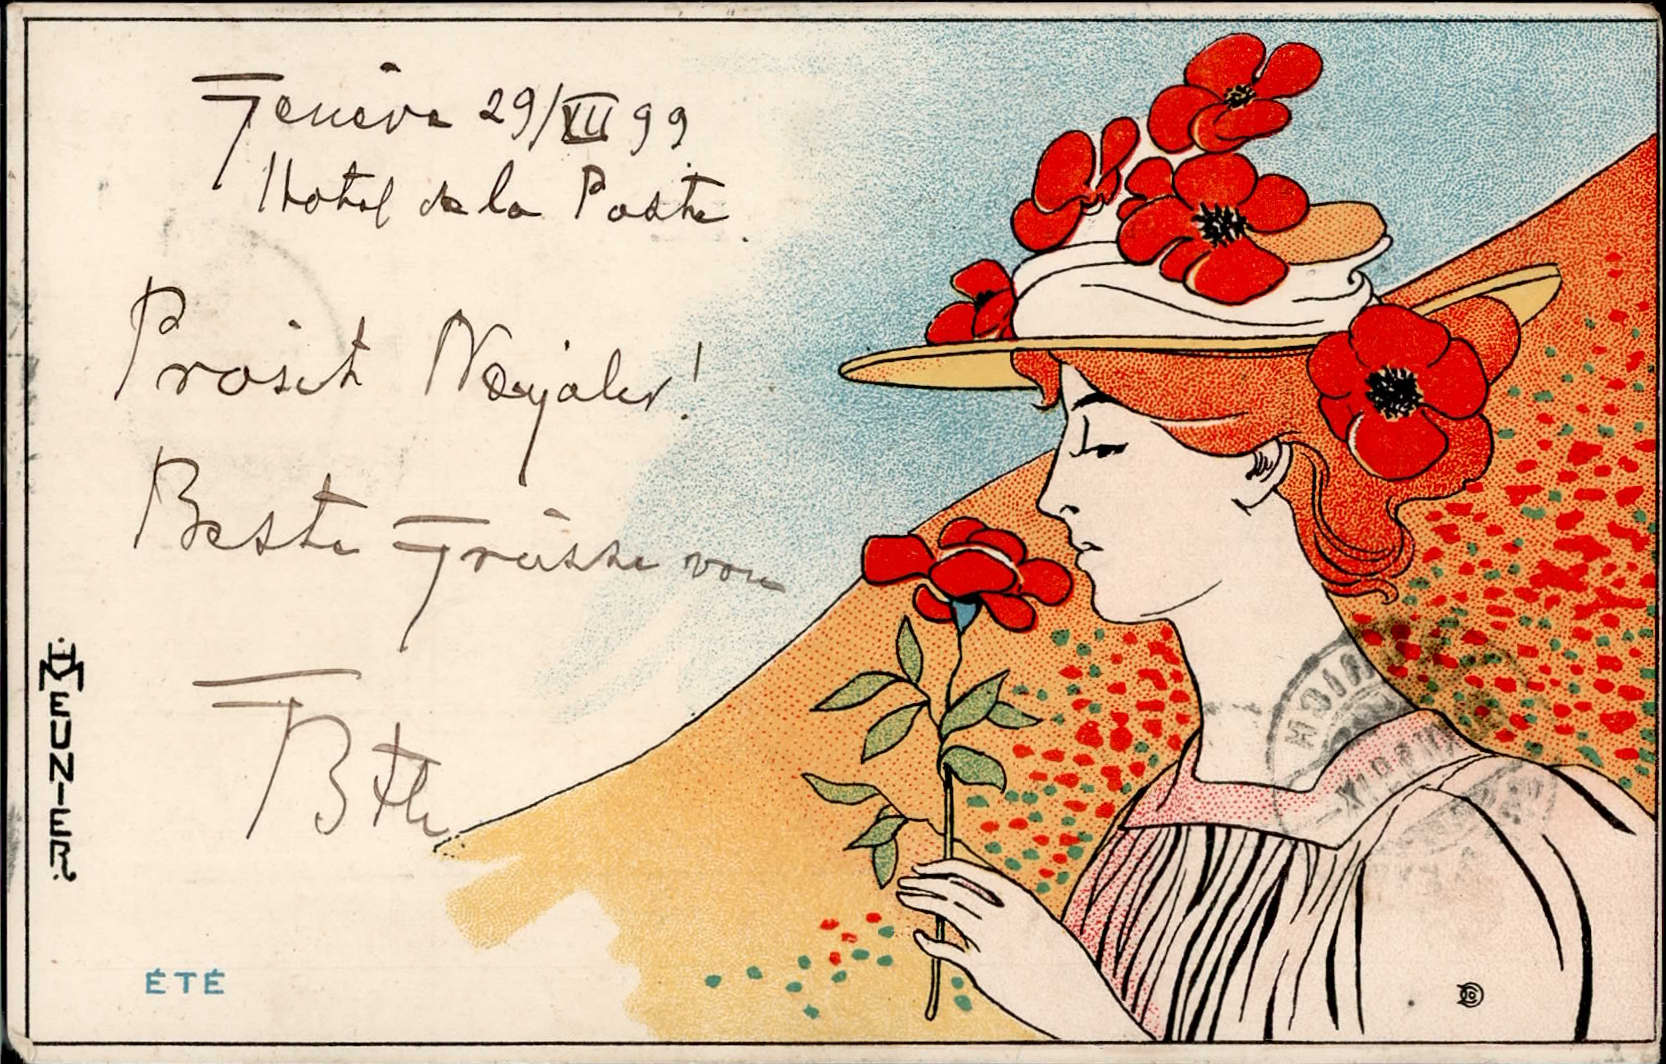 Genève 29/XII 99
Hotel de la Poste.
Prosit Neujahr!
Beste Grüsse von
H MEUNIER.
ÉTÉ